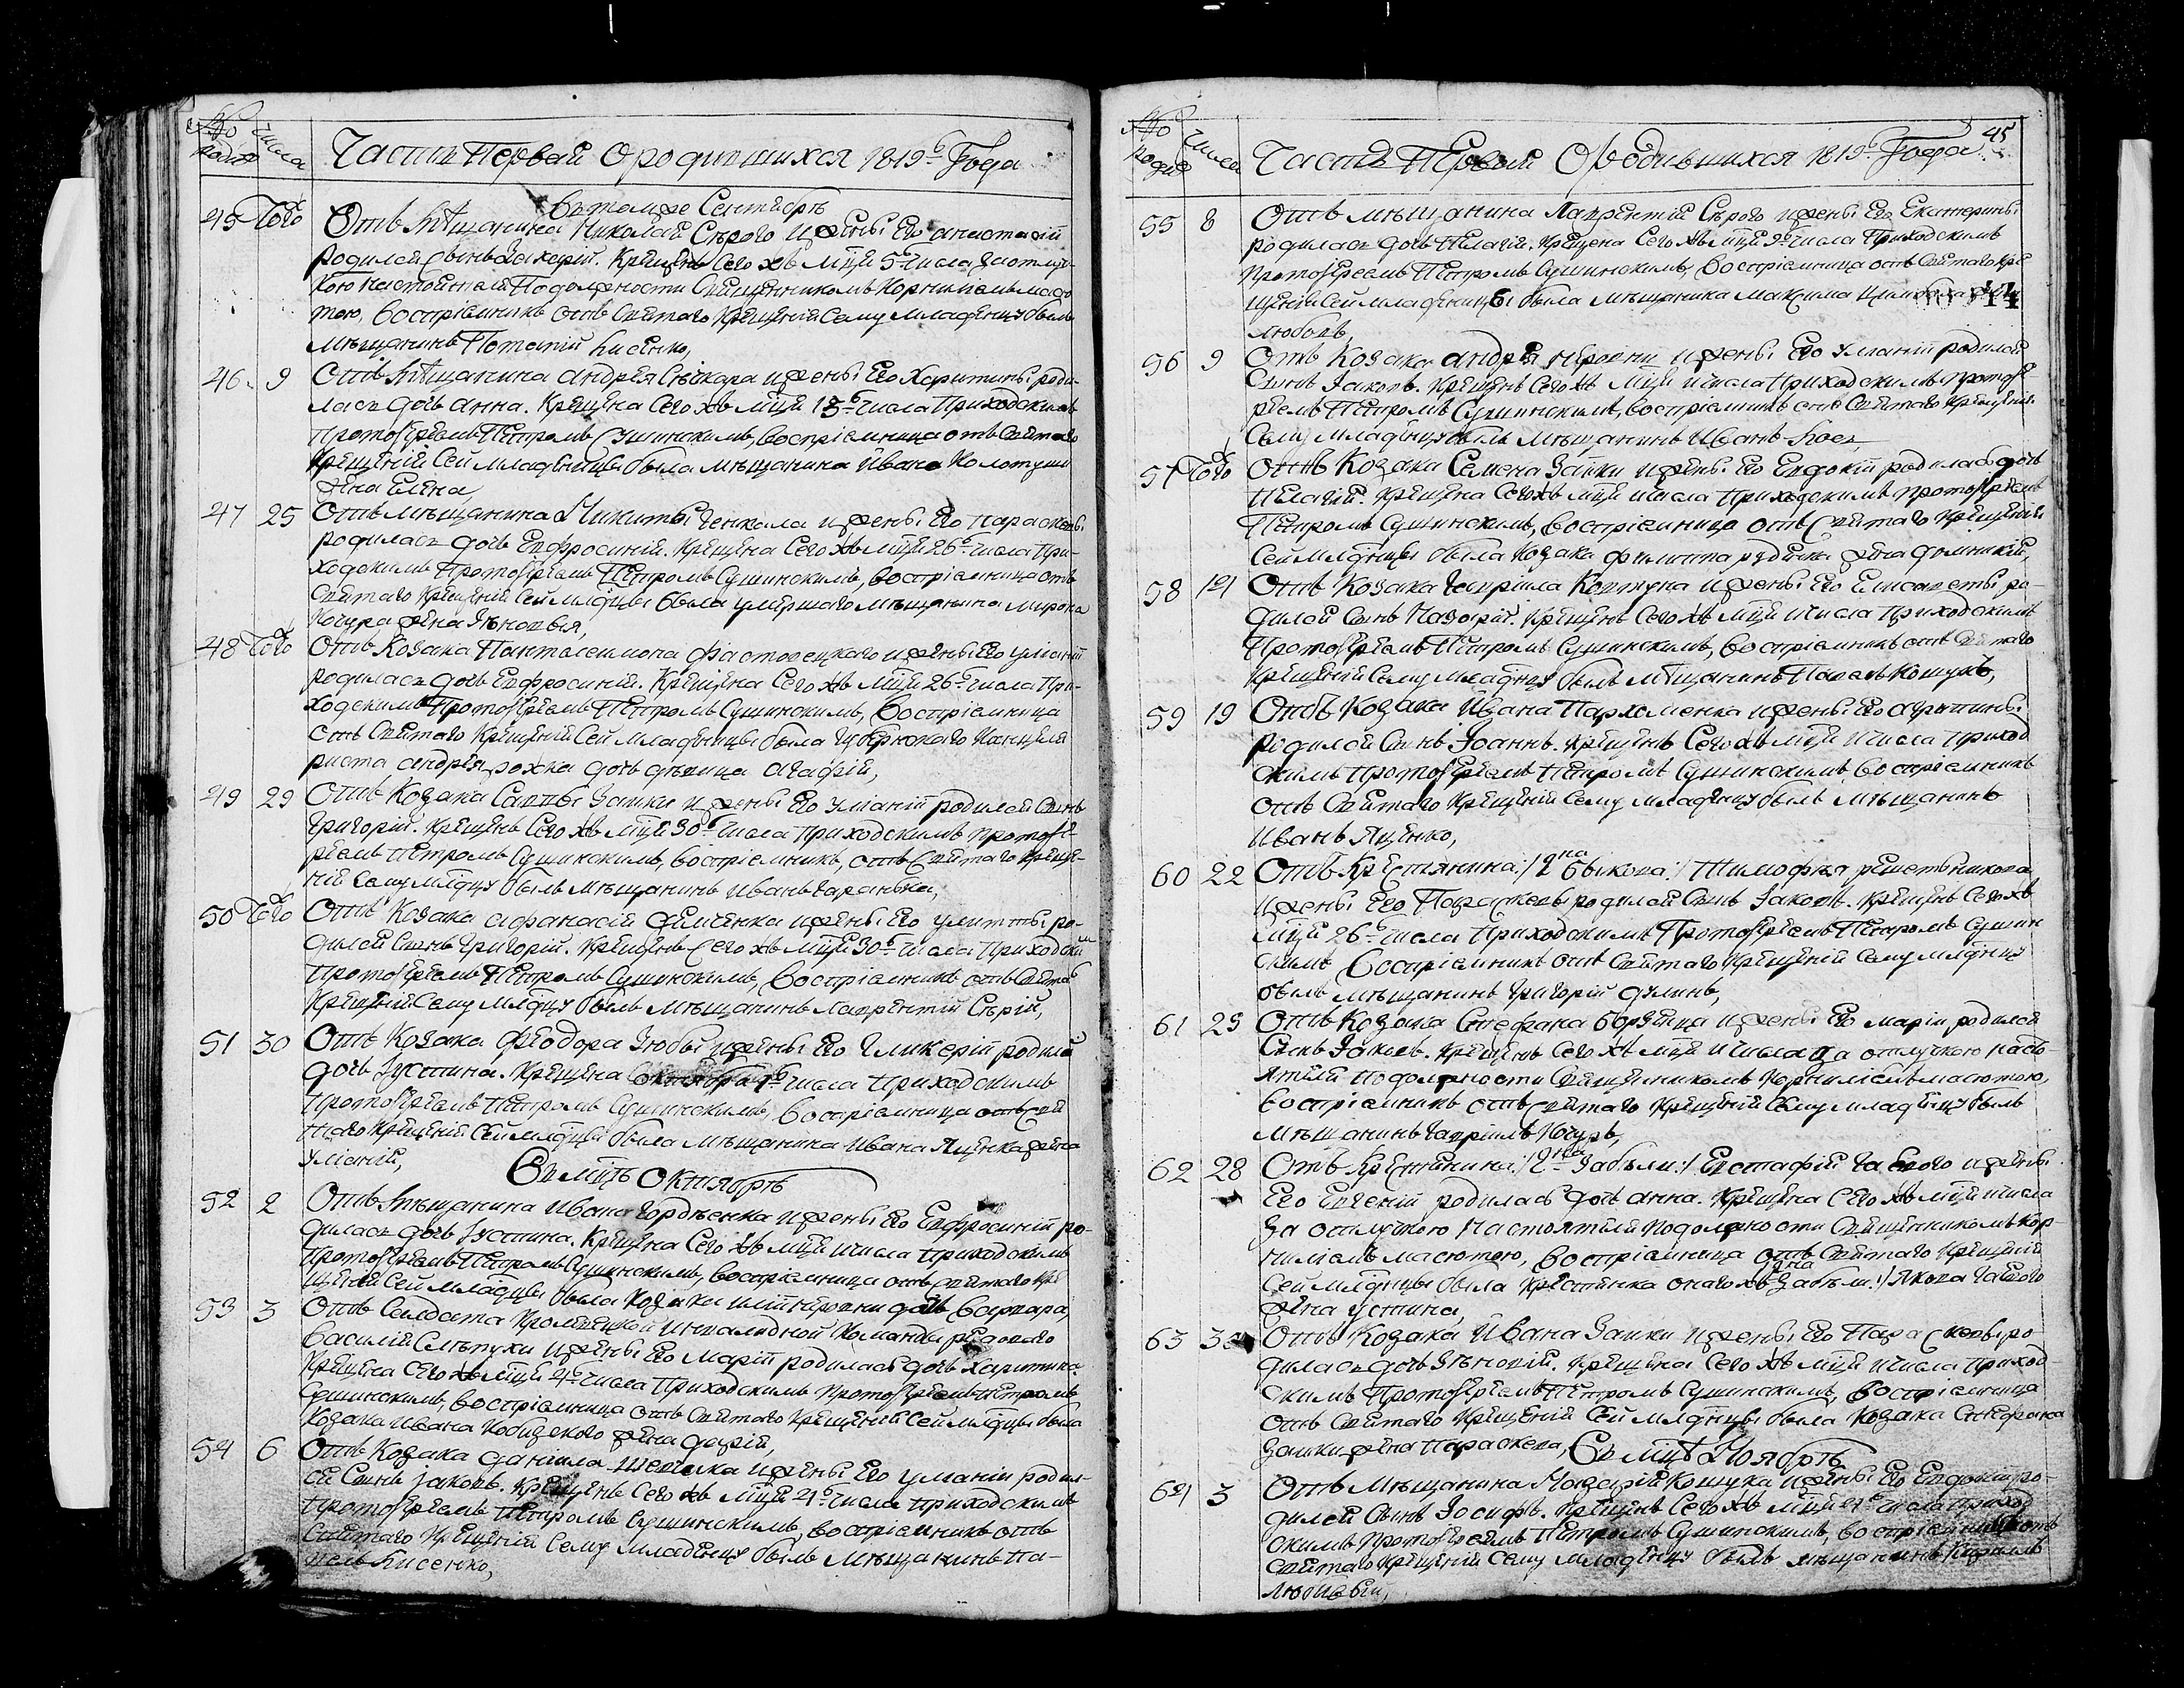 № родив
числа
Часть Первая О родившихся 1819го Года
в томже Сентябрѣ
45 Того
Отъ мѣщанина Николая Сѣрого и жены Его анастасіи
Родился сынъ Захарій. Крещенъ Сего жъ мца 5го числа за отлуч-
кою настоятеля По должности Священникомъ Корниліемъ масю
тою, восприемникъ отъ Святаго Крещенія Сему младенцу былъ
мѣщанинъ Потапій Кисенко,
46 9
Отъ мѣщанина андрея Сѣчкара и жены Его Харитины роди-
лась дочь анна. Крещена Сего жъ мца 13го числа Приходскимъ
Протоіереемъ Петромъ Сушинскимъ, восприемница отъ Святаго
Крещенія Сей младеницы была мѣщанина Ивана Колотуши
жена Елена,
47 25
Отъ мѣщанина Никиты Чепкала и жены Его Параскевы
родилась дочь Евфросинія. Крещена Сего жъ мца 26го числа При-
ходскимъ Протоіереемъ Петромъ Сушинскимъ, восприемница отъ
Святаго Крещенія Сей младцы была умершаго мѣщанина мирона
Кочура жена Зѣновья,
48 Того
Отъ Козака Панталеимона Фастовецкаго и жены Его уліаніи
родилась дочь Евфросинія. Крещена Сего жъ мца 26го числа При-
ходскимъ Протоіереемъ Петромъ Сушинскимъ, Восприемница
отъ Святаго Крещенія Сей младеницы была Губернскаго Канцеля
риста андрея рохка дочь дѣвица агафія,
49 29
Отъ Козака Саввы Заики и жены Его уліаніи родился Сынъ
Григорій. Крещенъ Сего жъ мца 30го числа приходскимъ протоіе-
реемъ Петромъ Сушинскимъ, восприемникъ, отъ Святаго Креще-
нія Сему младцу былъ мѣщанинъ Иванъ Гаранька,
50 Того
Отъ Козака афанасія Фименка и жены Его улитты ро-
дился Сынъ Григорій. Крещенъ Сего жъ мца 30го числа Приходским
Протоіереемъ Петромъ Сушинскимъ, Восприемникъ отъ Святаго
Крещенія Сему младцу былъ мѣщанинъ лаврентій Сѣрій,
51 30
Отъ Козака Феодора Зюбы и жены Его Гликеріи родилась
дочь Іустина. Крещена октября 1го числа приходскимъ
Протоіереемъ Петромъ Сушинскимъ, Восприемница отъ Свя
таго Крещенія Сей младцы была мѣщанина Ивана Яценка жена
Уліанія,
Въ мцѣ октябрѣ
52 2
Отъ мѣщанина Ивана Гордѣенка и жены Его Евфросиніи ро-
дилась дочь Іустина. Крещена Сего жъ мца и числа приходскимъ
Протоіереемъ Петромъ Сушинскимъ, восприемница отъ Святаго Кре
щенія Сей младцы была Козака дочь Варвара,
53 3
Отъ Салдата Кролевецкой инвалидной Команды рядоваго
Василія Слѣпухи и жены Его Маріи родилась дочь Харитина.
Крещена Сего жъ мца 4го числа Приходскимъ Протоіереемъ Петромъ
Сушинскимъ, восприемница отъ Святаго Крещенія Сей младцы была
Козака Ивана Кобизского жена дарія,
54 6
Отъ Козака даніила Шевчка и жены Его уліаніи родил-
ся Сынъ Іаковъ. Крещенъ Сего жъ мца числа Приходскимъ
Протоіереемъ Петромъ Сушинскимъ, восприемникъ отъ
Святаго Крещенія Сему младенцу былъ мѣщанинъ Па-
велъ Кисенко,
№ родив
числа
Часть Первая О родившихся 1819го Года
45
55 8
Отъ мѣщанина Лаврентія Сѣрого и жены Его Екатерины
родилась дочь Пелагія. Крещена Сего жъ мца 9го числа Приходскимъ
Протоіереемъ Петромъ Сушинскимъ, Восприемница отъ Святаго Кре
щенія Сей младеницы была мѣщанина Максима
44
любовь,
56 9
Отъ Козака андрея и жены Его уліаніи родился
Сынъ Іаковъ. Крещенъ Сего жъ мца и числа Приходскимъ протоіе-
реемъ Петромъ Сушинскимъ, восприемникъ отъ Святаго Крещенія
Сему младенцу былъ мѣщанинъ Иванъ
57 Того
Отъ Козака Семена Заики и жены Его Евдокіи родилась дочь
Пелагія. Крещена Сего жъ мца и числа приходскимъ протоіереемъ
Петромъ Сушинскимъ, восприемница отъ Святаго Крещенія
Сей младцы была Козака филиппа жена домникія,
58 14
Отъ Козака Гавріила Ковтуна и жены Его Елисаветы ро-
дился Сынъ Назарій. Крещенъ Сего жъ мца и числа приходскимъ
Протоіереемъ Петромъ Сушинскимъ, восприемникъ отъ Святаго
Крещенія Сему младенцу былъ мѣщанинъ Павелъ Кошукъ,
59 19
Отъ Козака Ивана Пархоменка и жены Его агрипины
родился Сынъ Іоаннъ. Крещенъ Сего жъ мца и числа приход
скимъ протоіереемъ Петромъ Сушинскимъ, восприемникъ
отъ Святаго Крещенія Сему младенцу былъ мѣщанинъ
Иванъ Яценко,
60 22
Отъ Крестьянина :/ Гна Быкова :/ Тимофея решетникова
и жены Его Параскевы родился Сынъ Іаковъ. Крещенъ Сего жъ
мца 26го числа Приходскимъ Протоіереемъ Петромъ Сушин
скимъ Восприемникъ отъ Святаго Крещенія Сему младенцу
былъ мѣщанинъ Григорій дулинъ,
61 23
Отъ Козака Стефана Борзенца и жены Его маріи родился
Сынъ Іаковъ. Крещенъ Сего жъ мца и числа за отлучкою насто-
ятеля по должности Священникомъ Корниліемъ масютою,
Восприемникъ отъ Святаго Крещенія Сему младенцу былъ
Мѣщанинъ Гавріилъ Кочуръ,
62 28
Отъ Крестянина :/ Гна Забѣлы :/ Евстафія и жены
Его Евгеніи родилась дочь анна. Крещена Сего жъ мца и числа
За отлучкою Настоятеля по должности Священникомъ Кор-
ниліемъ масютою, Восприемница отъ Святаго Крещенія
Сей младцы была Крестянка онаго жъ Гдна Забѣлы :/ Якова
жена устина,
63 30
Отъ Козака Ивана Заики и жены Его Параскевы ро
дилась дочь Зѣновія. Крещена Сего жъ мца и числа приход-
скимъ Протоіереемъ Петромъ Сушинскимъ, Восприемница
отъ Святаго Крещенія Сей младцы была Козака Стефана
Заики жена параскева,
Въ мцѣ Ноябрѣ
64 3
Отъ мѣщанина Макарія Кошука и жены Его Евдокіи ро-
дился Сынъ Іосифъ. Крещенъ Сего жъ мца 4го числа приход
скимъ протоіереемъ Петромъ Сушинскимъ, восприемникъ отъ
Святаго Крещенія Сему младенцу былъ мѣщанинъ Кирилъ